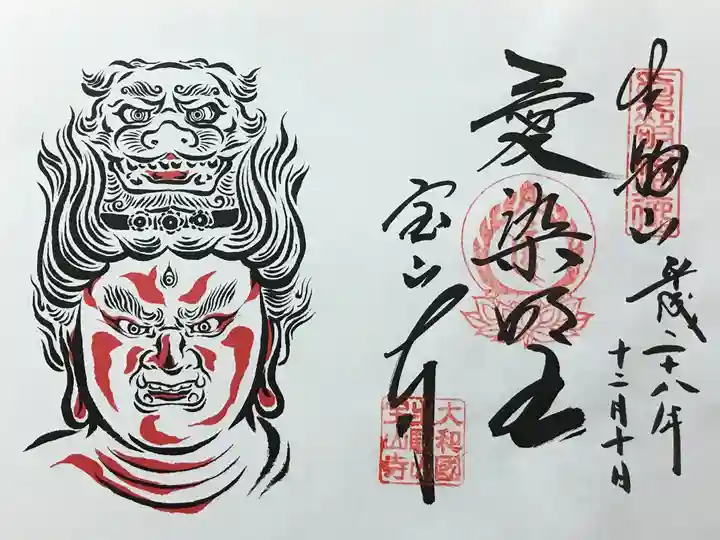 生駒山
平成二十八年
十二月十日
愛染明王
宝山寺
大和國
生駒山
宝山寺